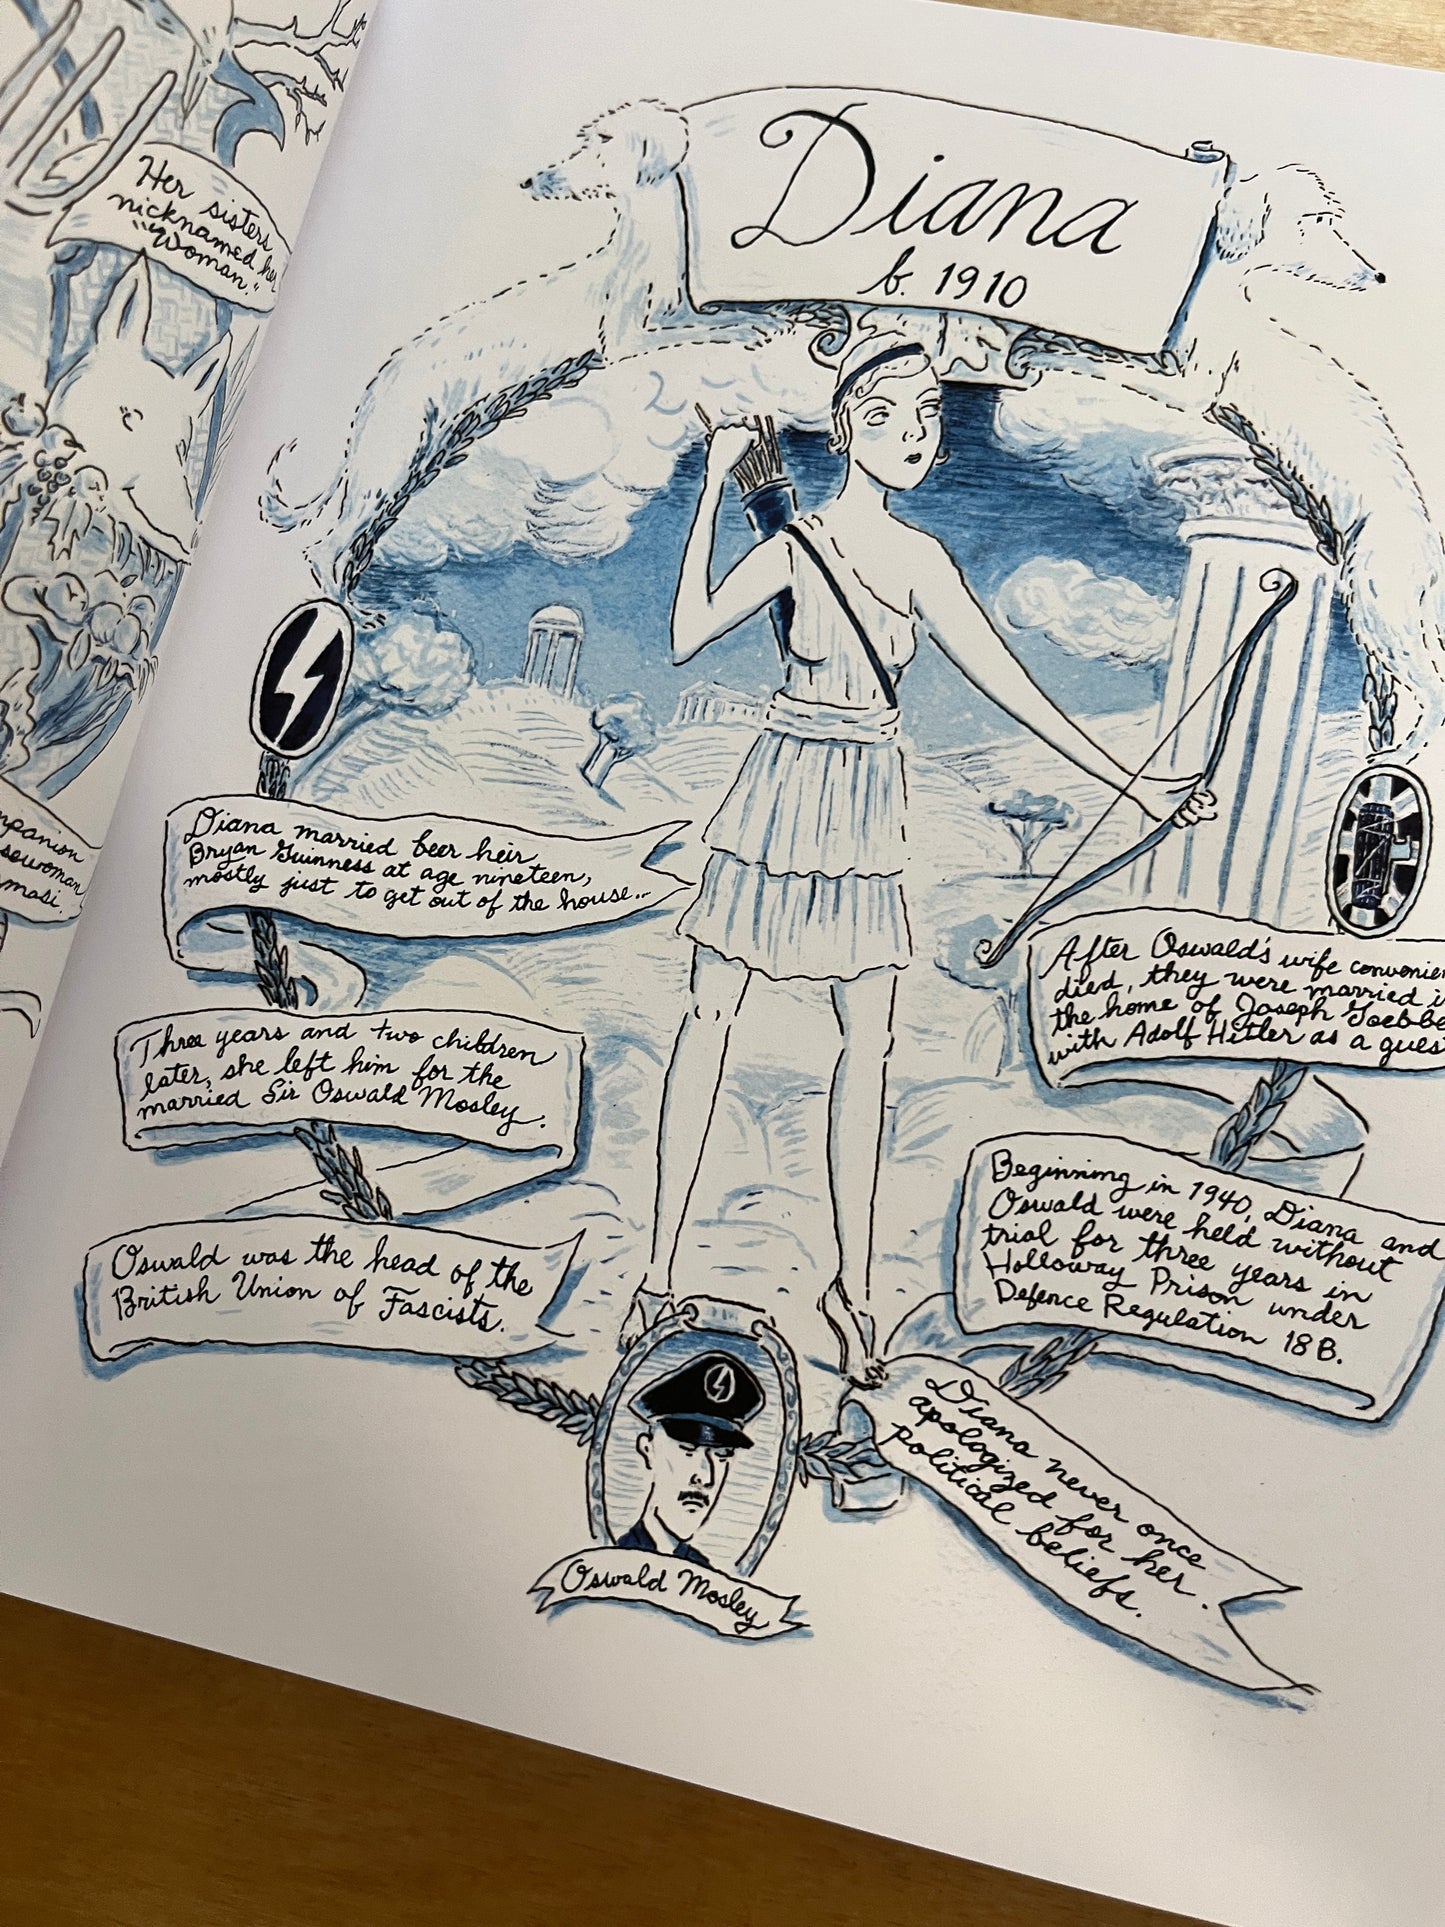 Her sisters
nicknamed her
"Woman."
Diana
b. 1910
Diana married beer heir
Bryan Guinness at age nineteen,
mostly just to get out of the house...
Three years and two children
later, she left him for the
married Sir Oswald Mosley.
Oswald was the head of the
British Union of Fascists.
After Oswald's wife
died, they were married
the home of Joseph
with Adolf Hitler as a
Beginning in 1940, Diana and
Oswald were held without
trial for three years in
Holloway Prison under
Defence Regulation 18B.
Diana never once
apologized for her
political beliefs.
Oswald Mosley